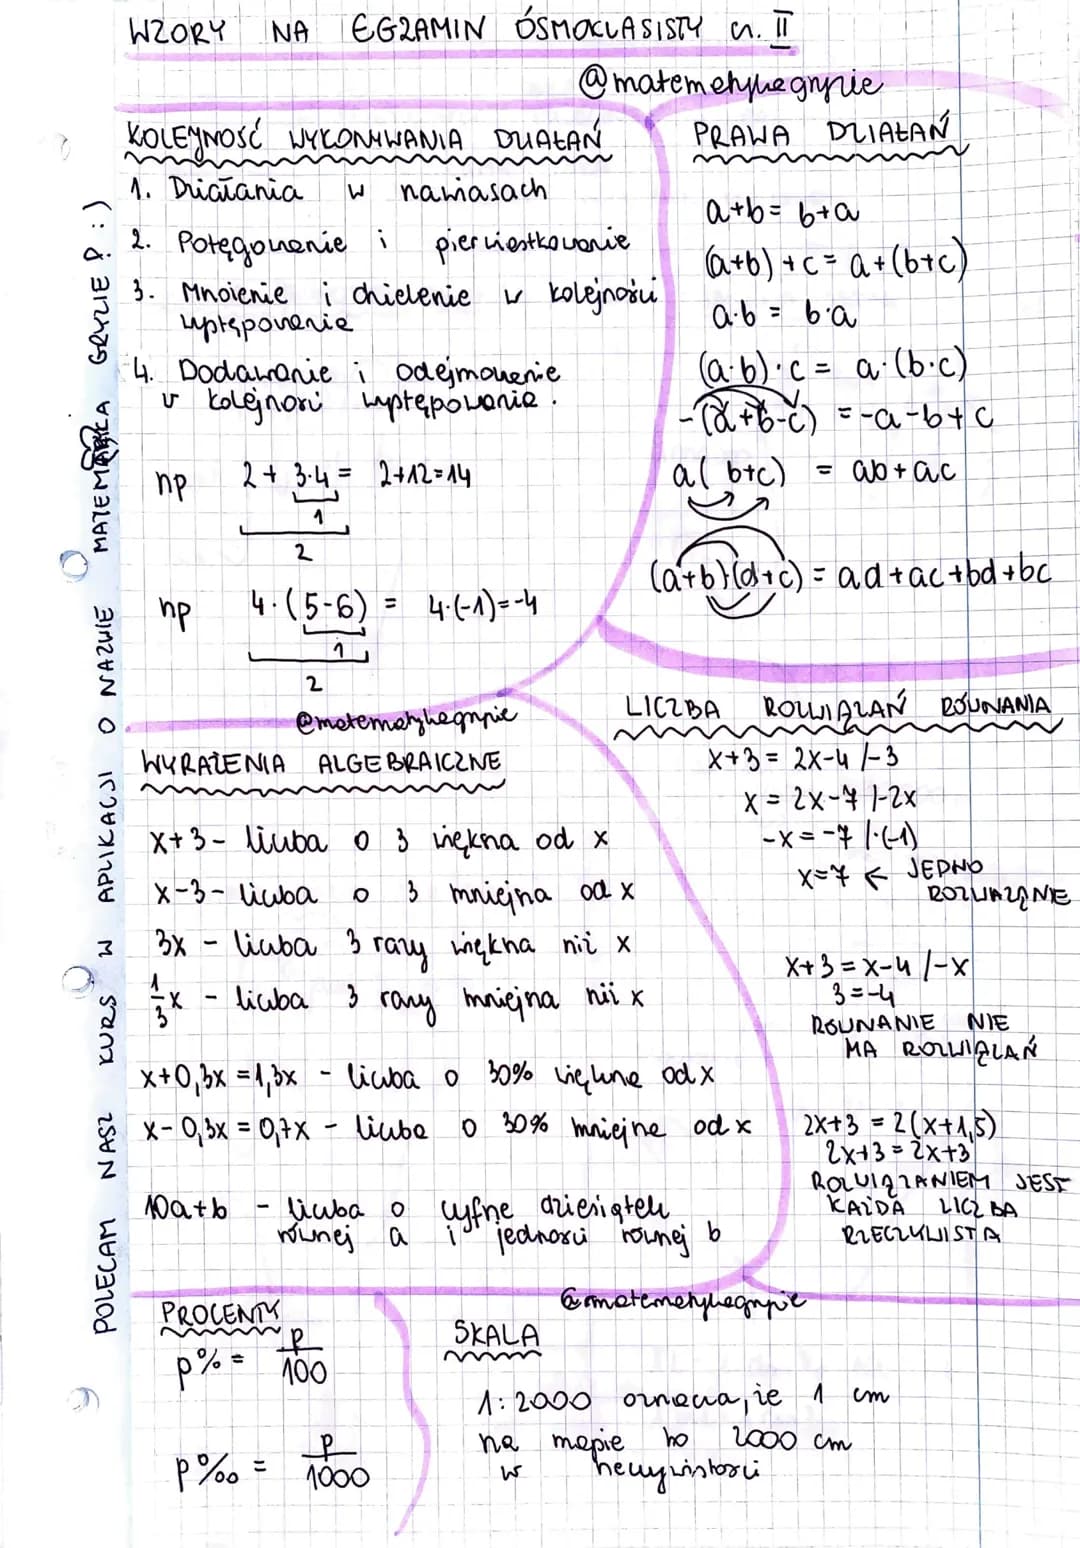 WZORY NA EGZAMIN ÓSMOKLASISTY cz. II
@matematykagryzie
KOLEJNOŚĆ WYKONYWANIA DZIAŁAŃ
1. Działania w nawiasach
2. Potęgowanie i pierwiastkowanie
3. Mnożenie i dzielenie w kolejności
występowania
4. Dodawanie i odejmowanie
w kolejności występowania.
np 2+3·4= 2+12=14
1
2
np 4·(5-6) = 4·(-1)=-4
1
2
@matematykagryzie
PRAWA DZIAŁAŃ
a+b= b+a
(a+b)+c= a+(b+c)
a·b = b·a
(a·b)·c = a·(b·c)
-(a+b-c) = -a-b+c
a(b+c) = ab+ac
(a+b)(d+c) = ad+ac+bd+bc
LICZBA ROZWIĄZAŃ RÓWNANIA
x+3 = 2x-4 /-3
x = 2x-7 /-2x
-x = -7 /·(-1)
x=7 ← JEDNO
ROZWIĄZANIE
x+3=x-4 /-x
3=-4
RÓWNANIE NIE
MA ROZWIĄZAŃ
2x+3 = 2(x+1,5)
2x+3=2x+3
ROZWIĄZANIEM JEST
KAŻDA LICZBA
RZECZYWISTA
WYRAŻENIA ALGEBRAICZNE
x+3 - liczba o 3 większa od x
x-3 - liczba o 3 mniejsza od x
3x - liczba 3 razy większa niż x
1/3x - liczba 3 razy mniejsza niż x
x+0,3x=1,3x - liczba o 30% większa od x
x-0,3x=0,7x - liczba o 30% mniejsza od x
10a+b - liczba o cyfrze dziesiątek
równej a i jedności równej b
@matematykagryzie
PROCENTY
p% = p/100
p‰ = p/1000
SKALA
1:2000 oznacza, że 1 cm
na mapie to 2000 cm
w rzeczywistości
POLECAM NASZ KURS W APLIKACJI O NAZWIE MATEMATYKA GRYZIE P. :)